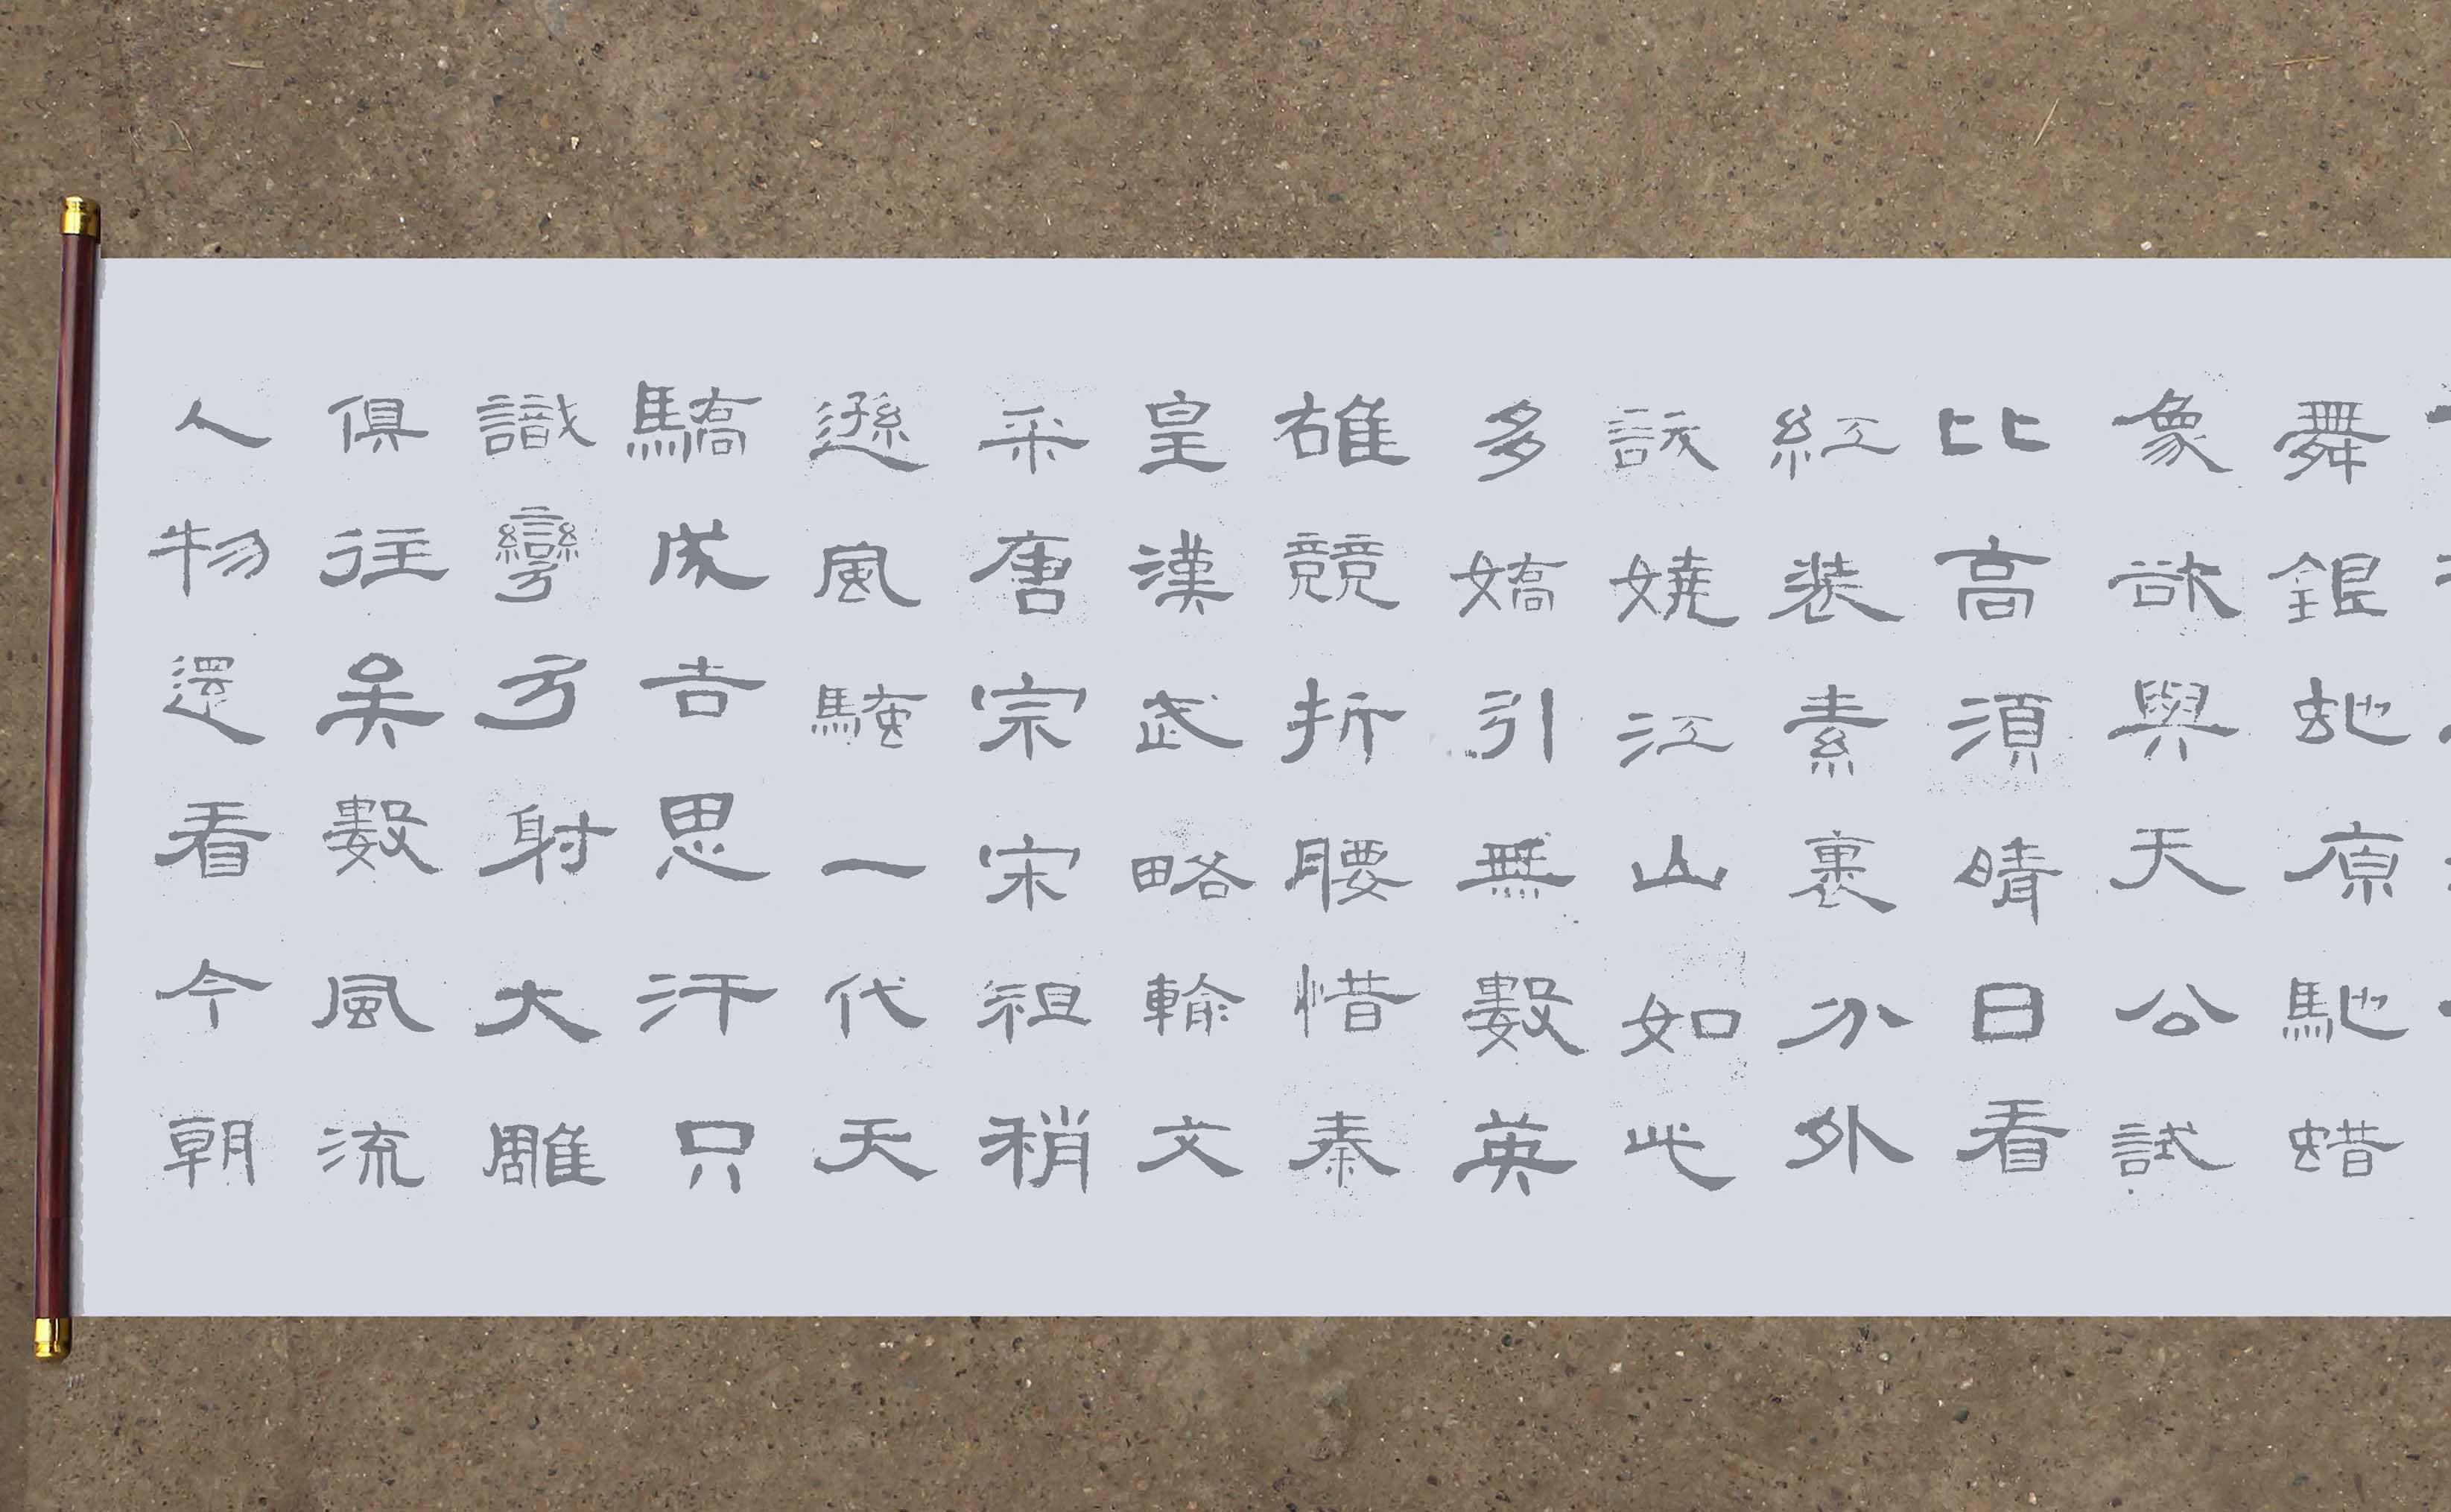 舞銀虵原馳蜡
象欲與天公試
比高須晴日看
紅裝素裹分外
訞嬈江山如此
多嬌引無數英
雄競折腰惜秦
皇漢武略輸文
采唐宗宋祖稍
遜風騷一代天
驕成吉思汗只
識彎弓射大雕
俱往矣數風流
人物還看今朝